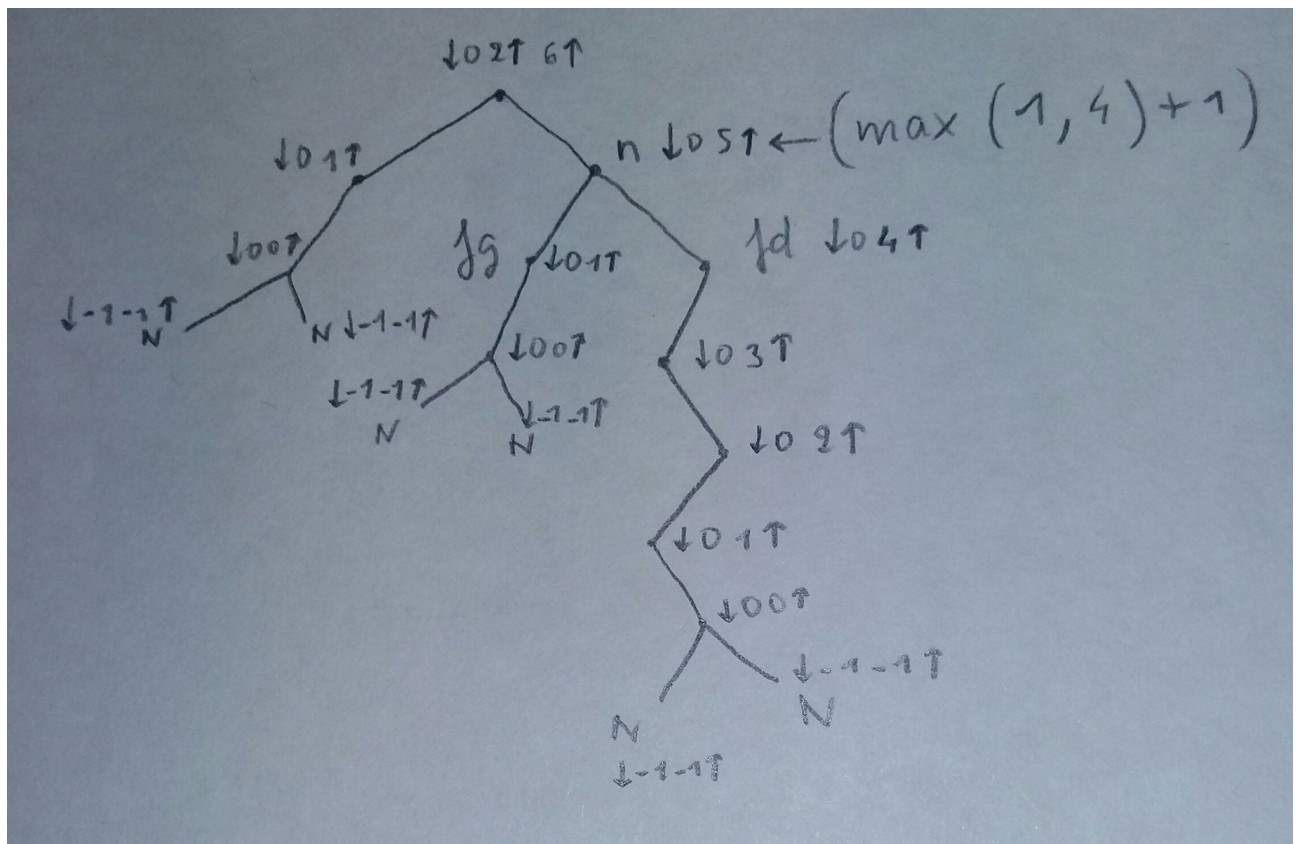 ↓0 2↑ 6↑
n ↓0 5↑ ← (max (1, 4) + 1)
↓0 1↑
fg ↓01↑
fd ↓0 4↑
↓00↑
↓-1-1↑
N
N ↓-1-1↑
↓00↑
↓0 3↑
↓-1-1↑
N
↓-1-1↑
N
↓0 2↑
↓0 1↑
↓00↑
↓-1-1↑
N
N
↓-1-1↑